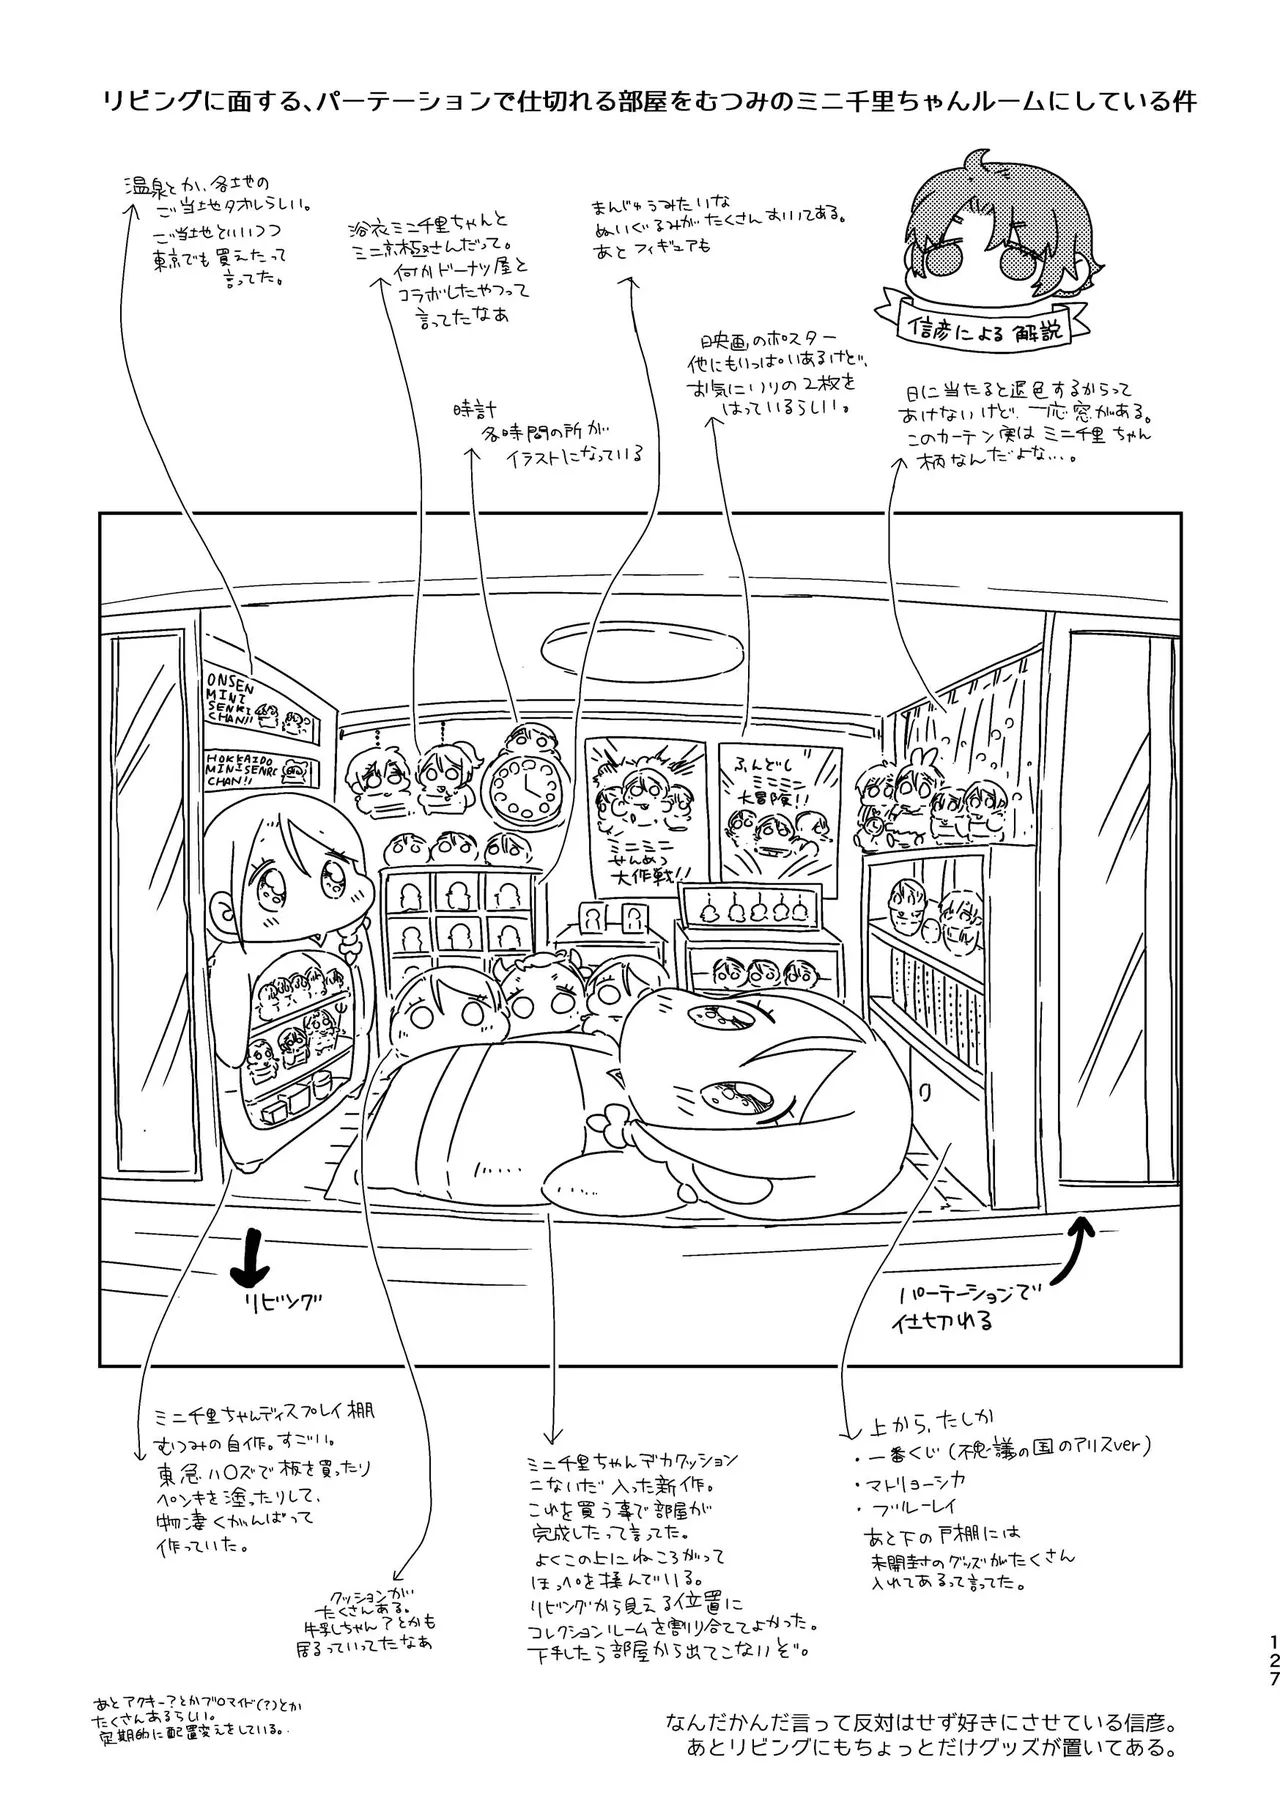 リビングに面する、パーテーションで仕切れる部屋をむつみのミニ千里ちゃんルームにしている件
信彦による解説
温泉とか、各地の
ご当地タオルらしい。
ご当地といいつつ
東京でも買えたって
言ってた。
浴衣ミニ千里ちゃんと
ミニ京極さんだって。
何かドーナツ屋と
コラボしたやつって
言ってたなあ
時計
各時間の所が
イラストになっている
まんじゅうみたいな
ぬいぐるみがたくさんおいてある。
あとフィギュアも
映画のポスター
他にもいっぱいあるけど、
お気にいりの2枚を
はっているらしい。
日に当たると退色するからって
あけないけど、一応窓がある。
このカーテン実はミニ千里ちゃん
柄なんだよな…。
ONSEN
MINI
SENRI
CHAN!!
HOKKAIDO
MINISENRI
CHAN!!
ミニミニ
せんめつ
大作戦!!
ふんどし
ミニミニ
大冒険!!
リビング
パーテーションで
仕切れる
ミニ千里ちゃんディスプレイ棚
むつみの自作。すごい。
東急ハ○ズで板を買ったり
ペンキを塗ったりして、
物凄くがんばって
作っていた。
クッションが
たくさんある。
牛乳ちゃん?とかも
居るっていってたなあ
ミニ千里ちゃんデカクッション
こないだ入った新作。
これを買う事で部屋が
完成したって言ってた。
よくこの上にねころがって
ほっぺを揉んでいる。
リビングから見える位置に
コレクションルームを割り当ててよかった。
下手したら部屋から出てこないぞ。
上から、たしか
・一番くじ(不思議の国のアリスver)
・マトリョーシカ
・ブルーレイ
あと下の戸棚には
未開封のグッズがたくさん
入れてあるって言ってた。
あとアクキー?とかブロマイド(?)とか
たくさんあるらしい。
定期的に配置変えをしている。
なんだかんだ言って反対はせず好きにさせている信彦。
あとリビングにもちょっとだけグッズが置いてある。
127